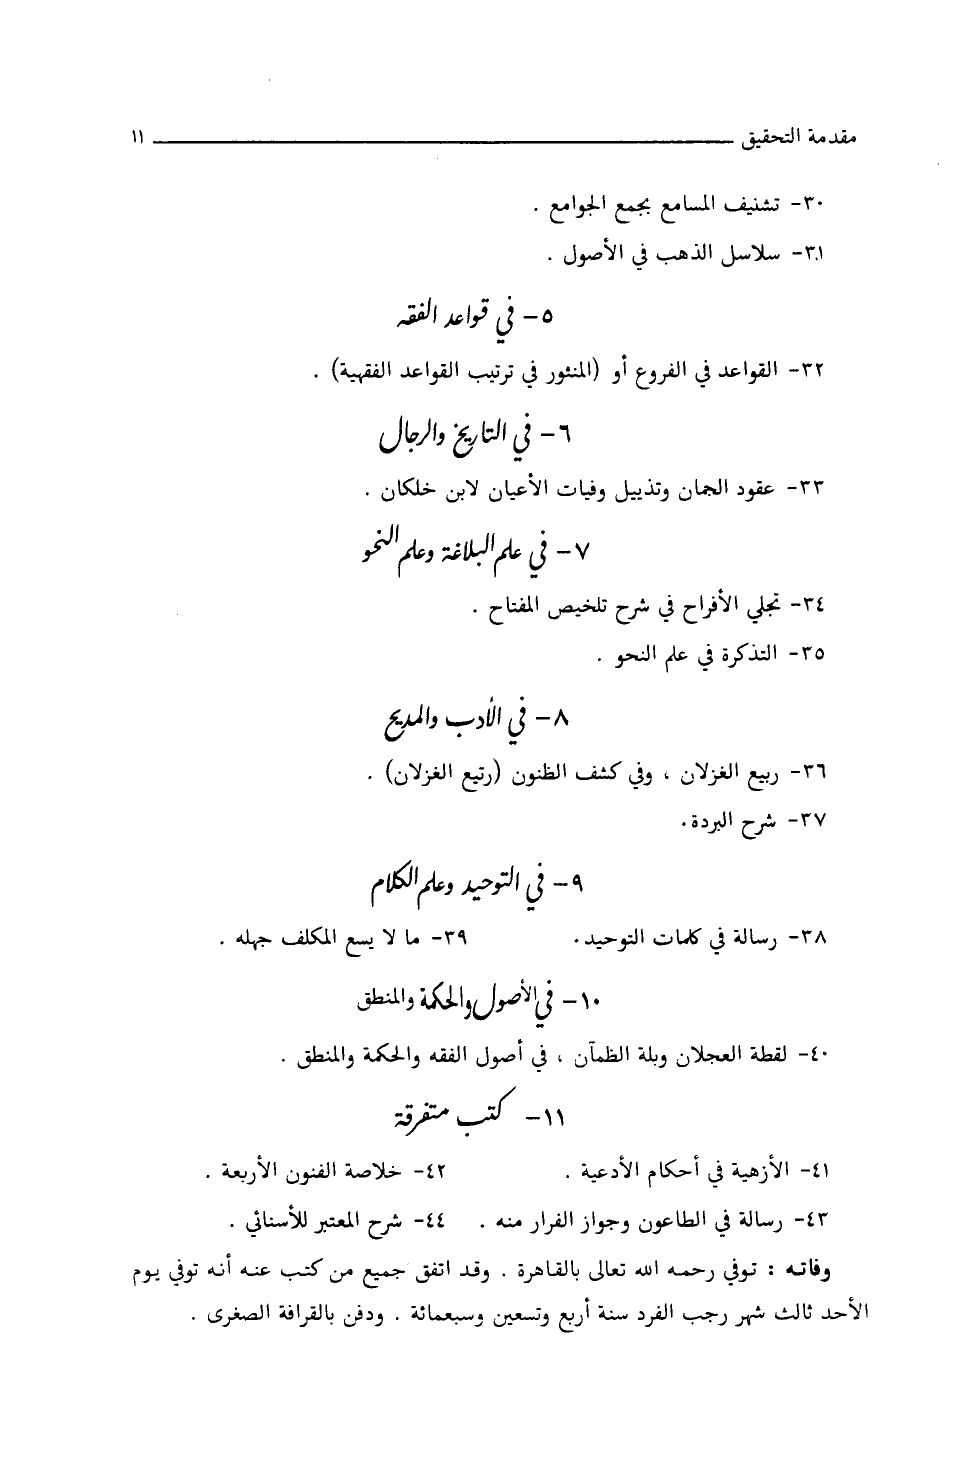 مقدمة التحقيق ــــــــــــــــــــ ١١
٣٠- تشنيف المسامع بجمع الجوامع .
٣١- سلاسل الذهب في الأصول .
٥- في قواعد الفقه
٣٢- القواعد في الفروع أو (المنثور في ترتيب القواعد الفقهية) .
٦- في التاريخ والرجال
٣٣- عقود الجمان وتذييل وفيات الأعيان لابن خلكان .
٧- في علم البلاغة وعلم النحو
٣٤- تجلي الأفراح في شرح تلخيص المفتاح .
٣٥- التذكرة في علم النحو .
٨- في الأدب والمديح
٣٦- ربيع الغزلان ، وفي كشف الظنون (رتيع الغزلان) .
٣٧- شرح البردة.
٩- في التوحيد وعلم الكلام
٣٨- رسالة في كلمات التوحيد. ٣٩- ما لا يسع المكلف جهله .
١٠- في الأصول والحكمة والمنطق
٤٠- لقطة العجلان وبلة الظمآن ، في أصول الفقه والحكمة والمنطق .
١١- كتب متفرقة
٤١- الأزهية في أحكام الأدعية . ٤٢- خلاصة الفنون الأربعة .
٤٣- رسالة في الطاعون وجواز الفرار منه . ٤٤- شرح المعتبر للأسنائي .
وفاته : توفي رحمه الله تعالى بالقاهرة . وقد اتفق جميع من كتب عنه أنه توفي يوم
الأحد ثالث شهر رجب الفرد سنة أربع وتسعين وسبعمائة . ودفن بالقرافة الصغرى .